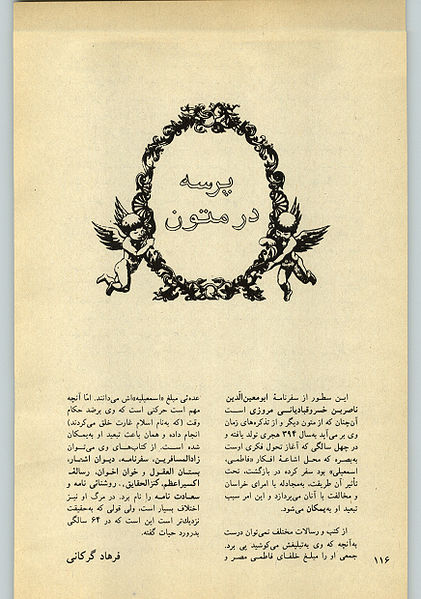 پرسه
در متون
این سطور از سفرنامهٔ ابومعین‌الدین
ناصربن خسروقبادیانی مروزی است
آن‌چنان که از متون دیگر و از تذکره‌های زمان
وی برمی‌آید به‌سال ۳۹۴ هجری تولد یافته و
در چهل سالگی که آغاز تحول فکری اوست
به‌بصره، که محل اشاعهٔ افکار «فاطمی،
اسمعیلی» بود سفر کرده در بازگشت، تحت
تأثیر آن طریقت، به‌مجادله با امرای خراسان
و مخالفت با آنان می‌پردازد و این امر سبب
تبعید او به‌یمکان می‌شود.
از کتب و رسالات مختلف نمی‌توان درست
به‌آنچه که وی به‌تبلیغش می‌کوشید پی برد.
جمعی او را مبلغ خلفای فاطمی مصر و
عده‌ئی مبلغ «اسمعیلیه»اش می‌دانند. امّا آنچه
مهم است حرکتی است که وی برضد حکام
وقت (که به‌نام اسلام غارت خلق می‌کردند)
انجام داده و همان باعث تبعید او به‌یمکان
شده است. از کتاب‌های وی می‌توان
زادالمسافرین، سفرنامه، دیوان اشعار،
بستان العقول و خوان اخوان، رسالهٔ
اکسیراعظم، کنزالحقایق، روشنائی نامه و
سعادت نامه را نام برد. در مرگ او نیز
اختلاف بسیار است، ولی قولی که به‌حقیقت
نزدیک‌تر است این است که در ۶۴ سالگی
بدرورد حیات گفته.
فرهاد گرکانی
۱۱۶